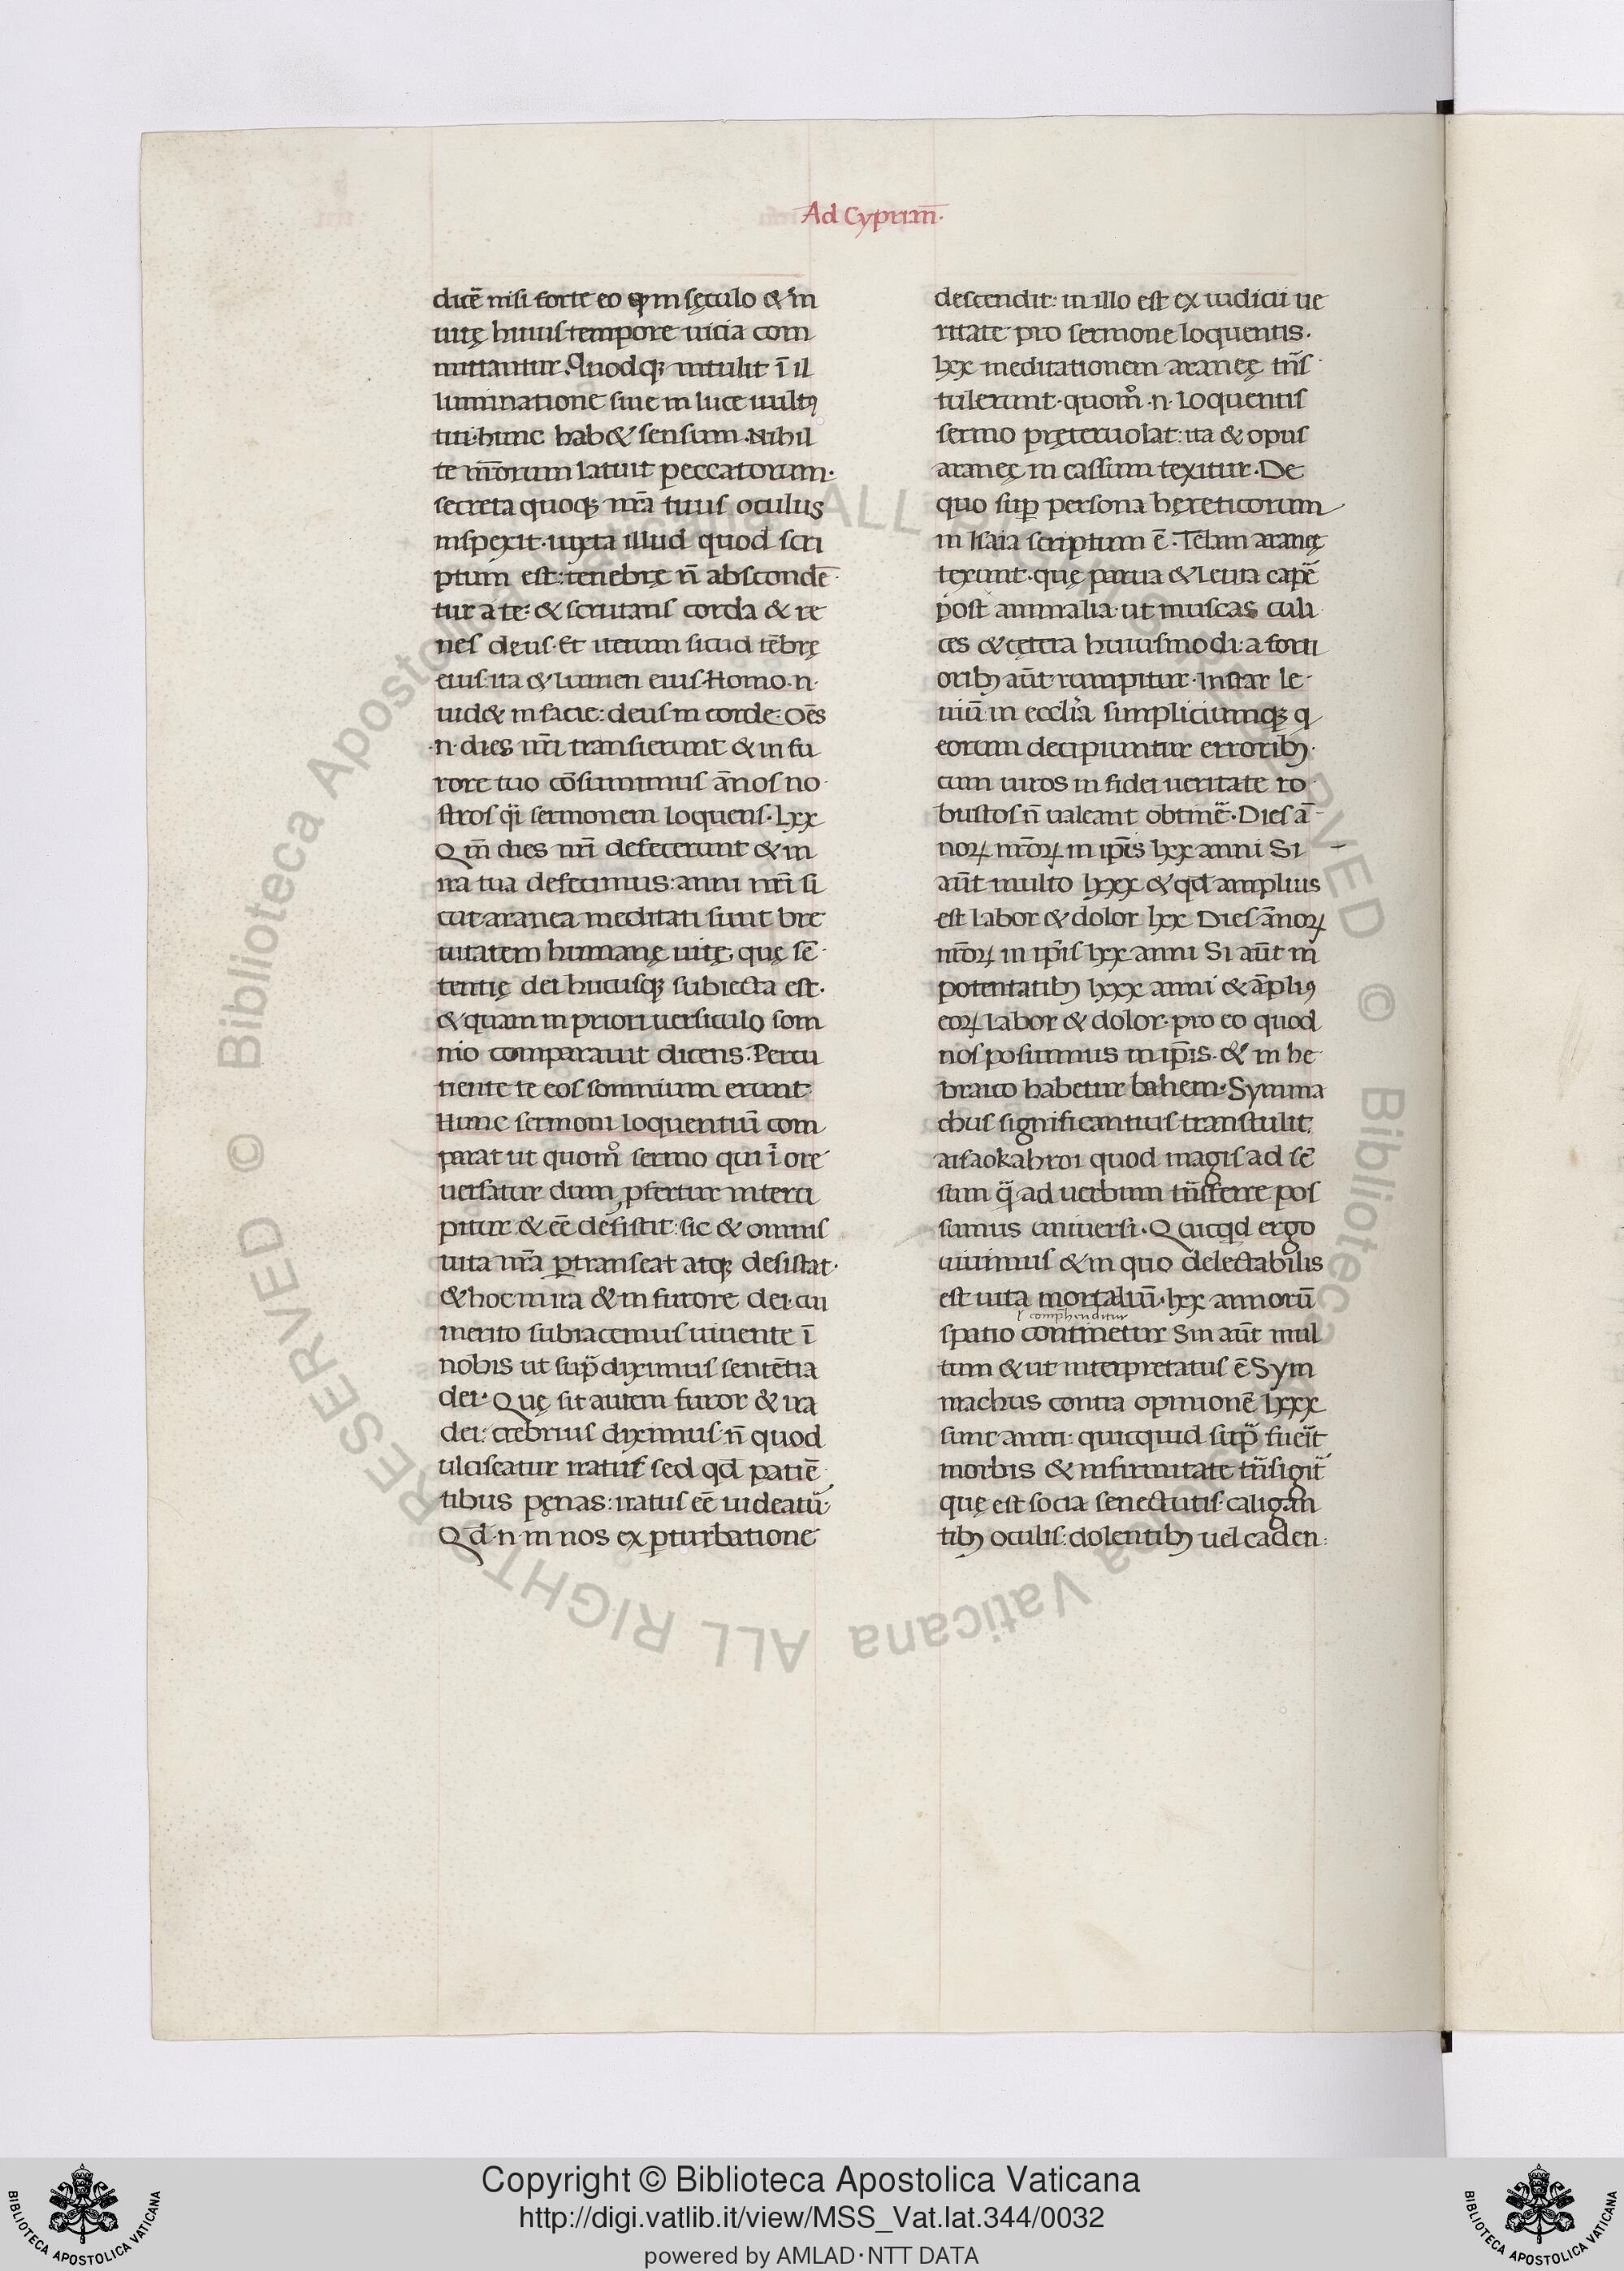 Ad Cyprian̄·
dicē nisi forte eo qm sęculo & in
uitę huius tempore uicia com
mittantur. Quodq; intulit ī il
luminatione siue in luce uultꝰ
tui· hunc hab& sensum. Nihil
te nr̄orum latuit peccatorum·
secreta quoq; nr̄a tuus oculus
inspexit· iuxta illud quod scri
ptum est: tenebrę n̄ abscondē
tur a te: & scrutans corda & re
nes deus. Et iterum sicud tēbrę
eius: ita & lumen eius. Homo ·n·
uid& in facie: deus in corde. Oēs
·n· dies nr̄i transierunt & in fu
rore tuo cōsumimus ānos no
stros q̈i sermonem loquens. Lxx
Qm̄ dies nr̄i defecerunt & in
ira tua defecimus: anni nr̄i si
cut aranea meditati sunt bre
uitatem humanę uitę, quę sē
tentię dei hucusq; subiecta est.
& quam in priori uersiculo som
nio comparauit dicens: Percu
tiente te eos somnium erunt·
Hunc sermoni loquentiū com
parat ut quom̊ sermo qui ī ore
uersatur dum ꝓfertur interci
pitur & eē desistit: sic & omnis
uita nr̄a ꝑtranseat atq; desistat·
& hoc in ira & in furore dei· cui
merito subiacemus uiuente ī
nobis ut sup̄ diximus sentētia
dei· Quę sit autem furor & ira
dei: crebrius diximus· n̄ quod
ulciscatur iratus sed qd̄ patiē
tibus pęnas: iratus eē uideatū·
Qd̄ ·n· in nos ex ꝑturbatione
descendit: in illo est ex iudicii ue
ritate pro sermone loquentis.
lxx meditationem araneę trās
tulerunt· quom̊ ·n· loquentis
sermo pręteruolat: ita & opus
aranęę in cassum texitur. De
quo suꝑ persona hęreticorum
in Isaia scriptum ē. Telam aranęę
texunt· quę parua & leuia capē
post animalia· ut muscas culi
ces & cętera huiusmodi: a forti
oribꝫ aūt rumpitur· Instar le
uiū in eccl̄ia simpliciumq; q
eorum decipiuntur erroribꝫ·
cum uiros in fidei ueritate ro
bustos n̄ ualeant obtinē. Dies ā
noꝝ nr̄oꝝ in ip̄is lxx anni Si
aūt multo lxxx & qd̄ amplius
est labor & dolor lxx Dies ānoꝝ
nr̄oꝝ in ip̄is lxx anni Si aūt in
potentatibꝫ lxxx anni & āpliꝰ
eoꝝ labor & dolor· pro eo quod
nos posuimus in ip̄is· & in he
braico habetur bahem· Symma
chus significantius transtulit
aisaokahroi quod magis ad sē
sum q̄ ad uerbum trāsferre pos
sumus uniuersi. Quicqd̄ ergo
uiuimus & in quo delectabilis
est uita mortaliū· lxx annorū
ł comprehenditur
spatio continetur Sin aūt mul
tum & ut interpretatus ē Sym
machus contra opinionē lxxx
sunt anni: quicquid sup̄ fuerit
morbis & infirmitate trāsigit̄
quę est socia senectutis· caligan
tibꝫ oculis: dolentibꝫ uel caden:
© Biblioteca Apostolica Vaticana ALL RIGHTS RESERVED © Biblioteca Apostolica Vaticana ALL RIGHTS RESERVED
Copyright © Biblioteca Apostolica Vaticana
http://digi.vatlib.it/view/MSS_Vat.lat.344/0032
powered by AMLAD·NTT DATA
BIBLIOTECA APOSTOLICA VATICANA
BIBLIOTECA APOSTOLICA VATICANA